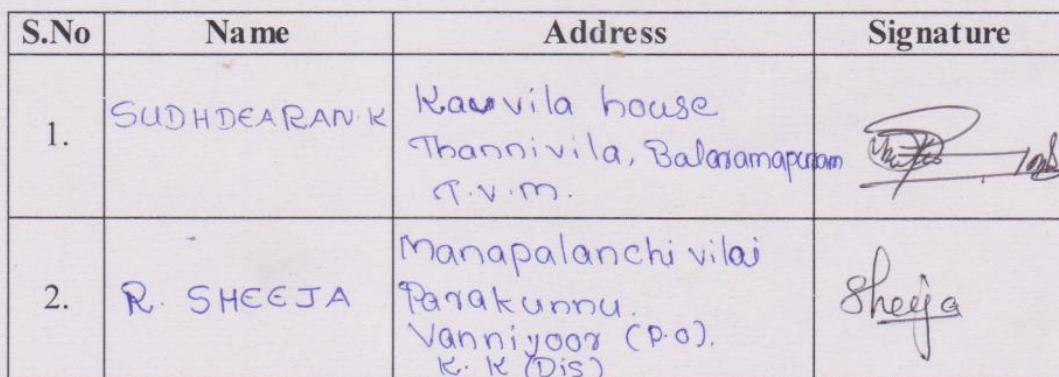 S.No Name Address Signature
1. SUDHDEARAN.K Kavvila house
Thannivila, Balaramapuram
T.V.M.
2. R. SHEEJA Manapalanchi vilai Sheeja
Parakunnu.
Vanniyoor (P.O).
K. K (Dis)